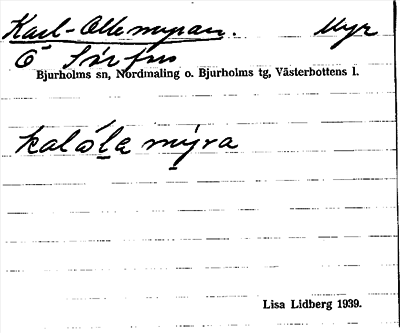 Karl-Ollemyran. Myr
Bjurholms sn, Nordmaling o. Bjurholms tg, Västerbottens l.
kalóla mýra
Lisa Lidberg 1939.